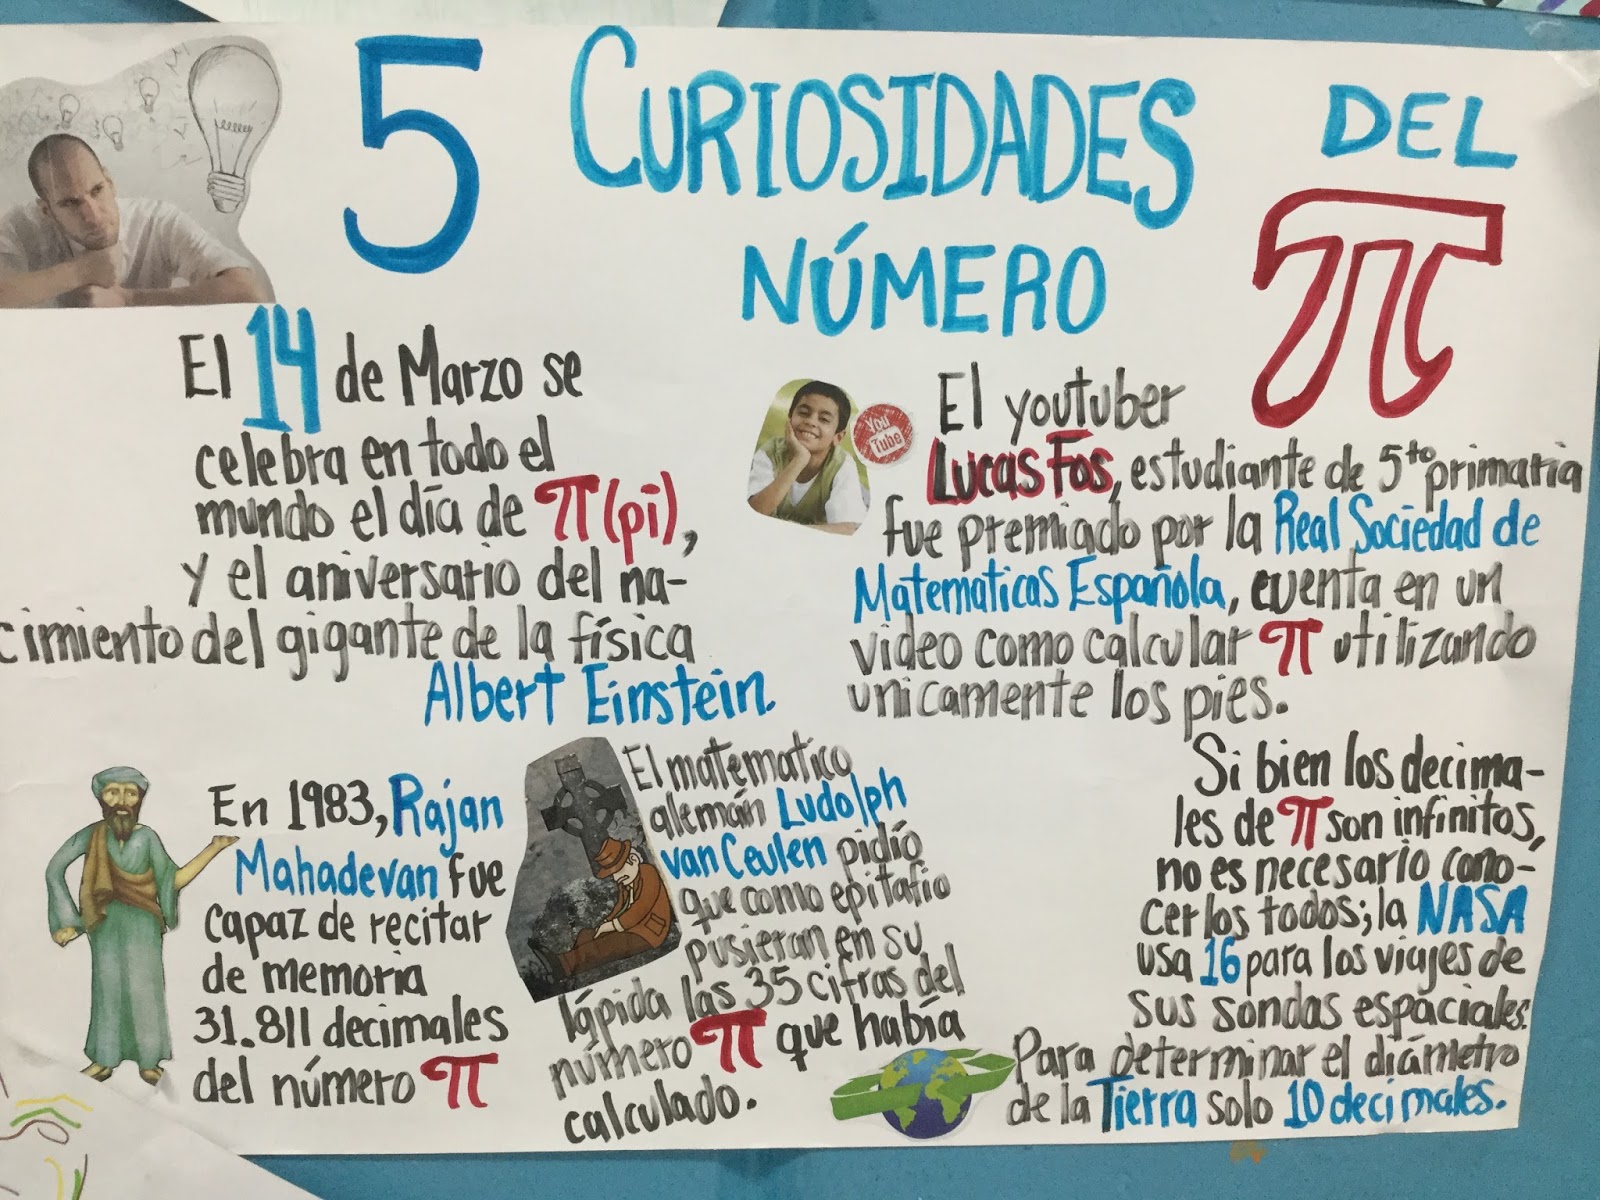 5 CURIOSIDADES DEL
NÚMERO π
El 14 de Marzo se
celebra en todo el
mundo el día de π (pi),
y el aniversario del na-
cimiento del gigante de la física
Albert Einstein.
You
Tube
El youtuber
Lucas Fos, estudiante de 5to primaria
fue premiado por la Real Sociedad de
Matematicas Española, cuenta en un
video como calcular π utilizando
unicamente los pies.
En 1983, Rajan
Mahadevan fue
capaz de recitar
de memoria
31.811 decimales
del número π
El matematico
alemán Ludolph
van Ceulen pidió
que como epitafio
pusieran en su
lápida las 35 cifras del
número π que había
calculado.
Si bien los decima-
les de π son infinitos,
no es necesario cono-
cerlos todos; la NASA
usa 16 para los viajes de
sus sondas espaciales.
Para determinar el diámetro
de la Tierra solo 10 decimales.